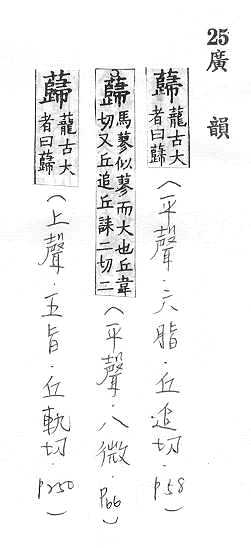 25廣韻
蘬 蘢古大者曰蘬
(平聲．六脂．丘追切．P58)
蘬 馬蓼似蓼而大也丘韋切又丘追丘誄二切二
(平聲．八微．P66)
蘬 蘢古大者曰蘬
(上聲．五旨．丘軌切．P250)